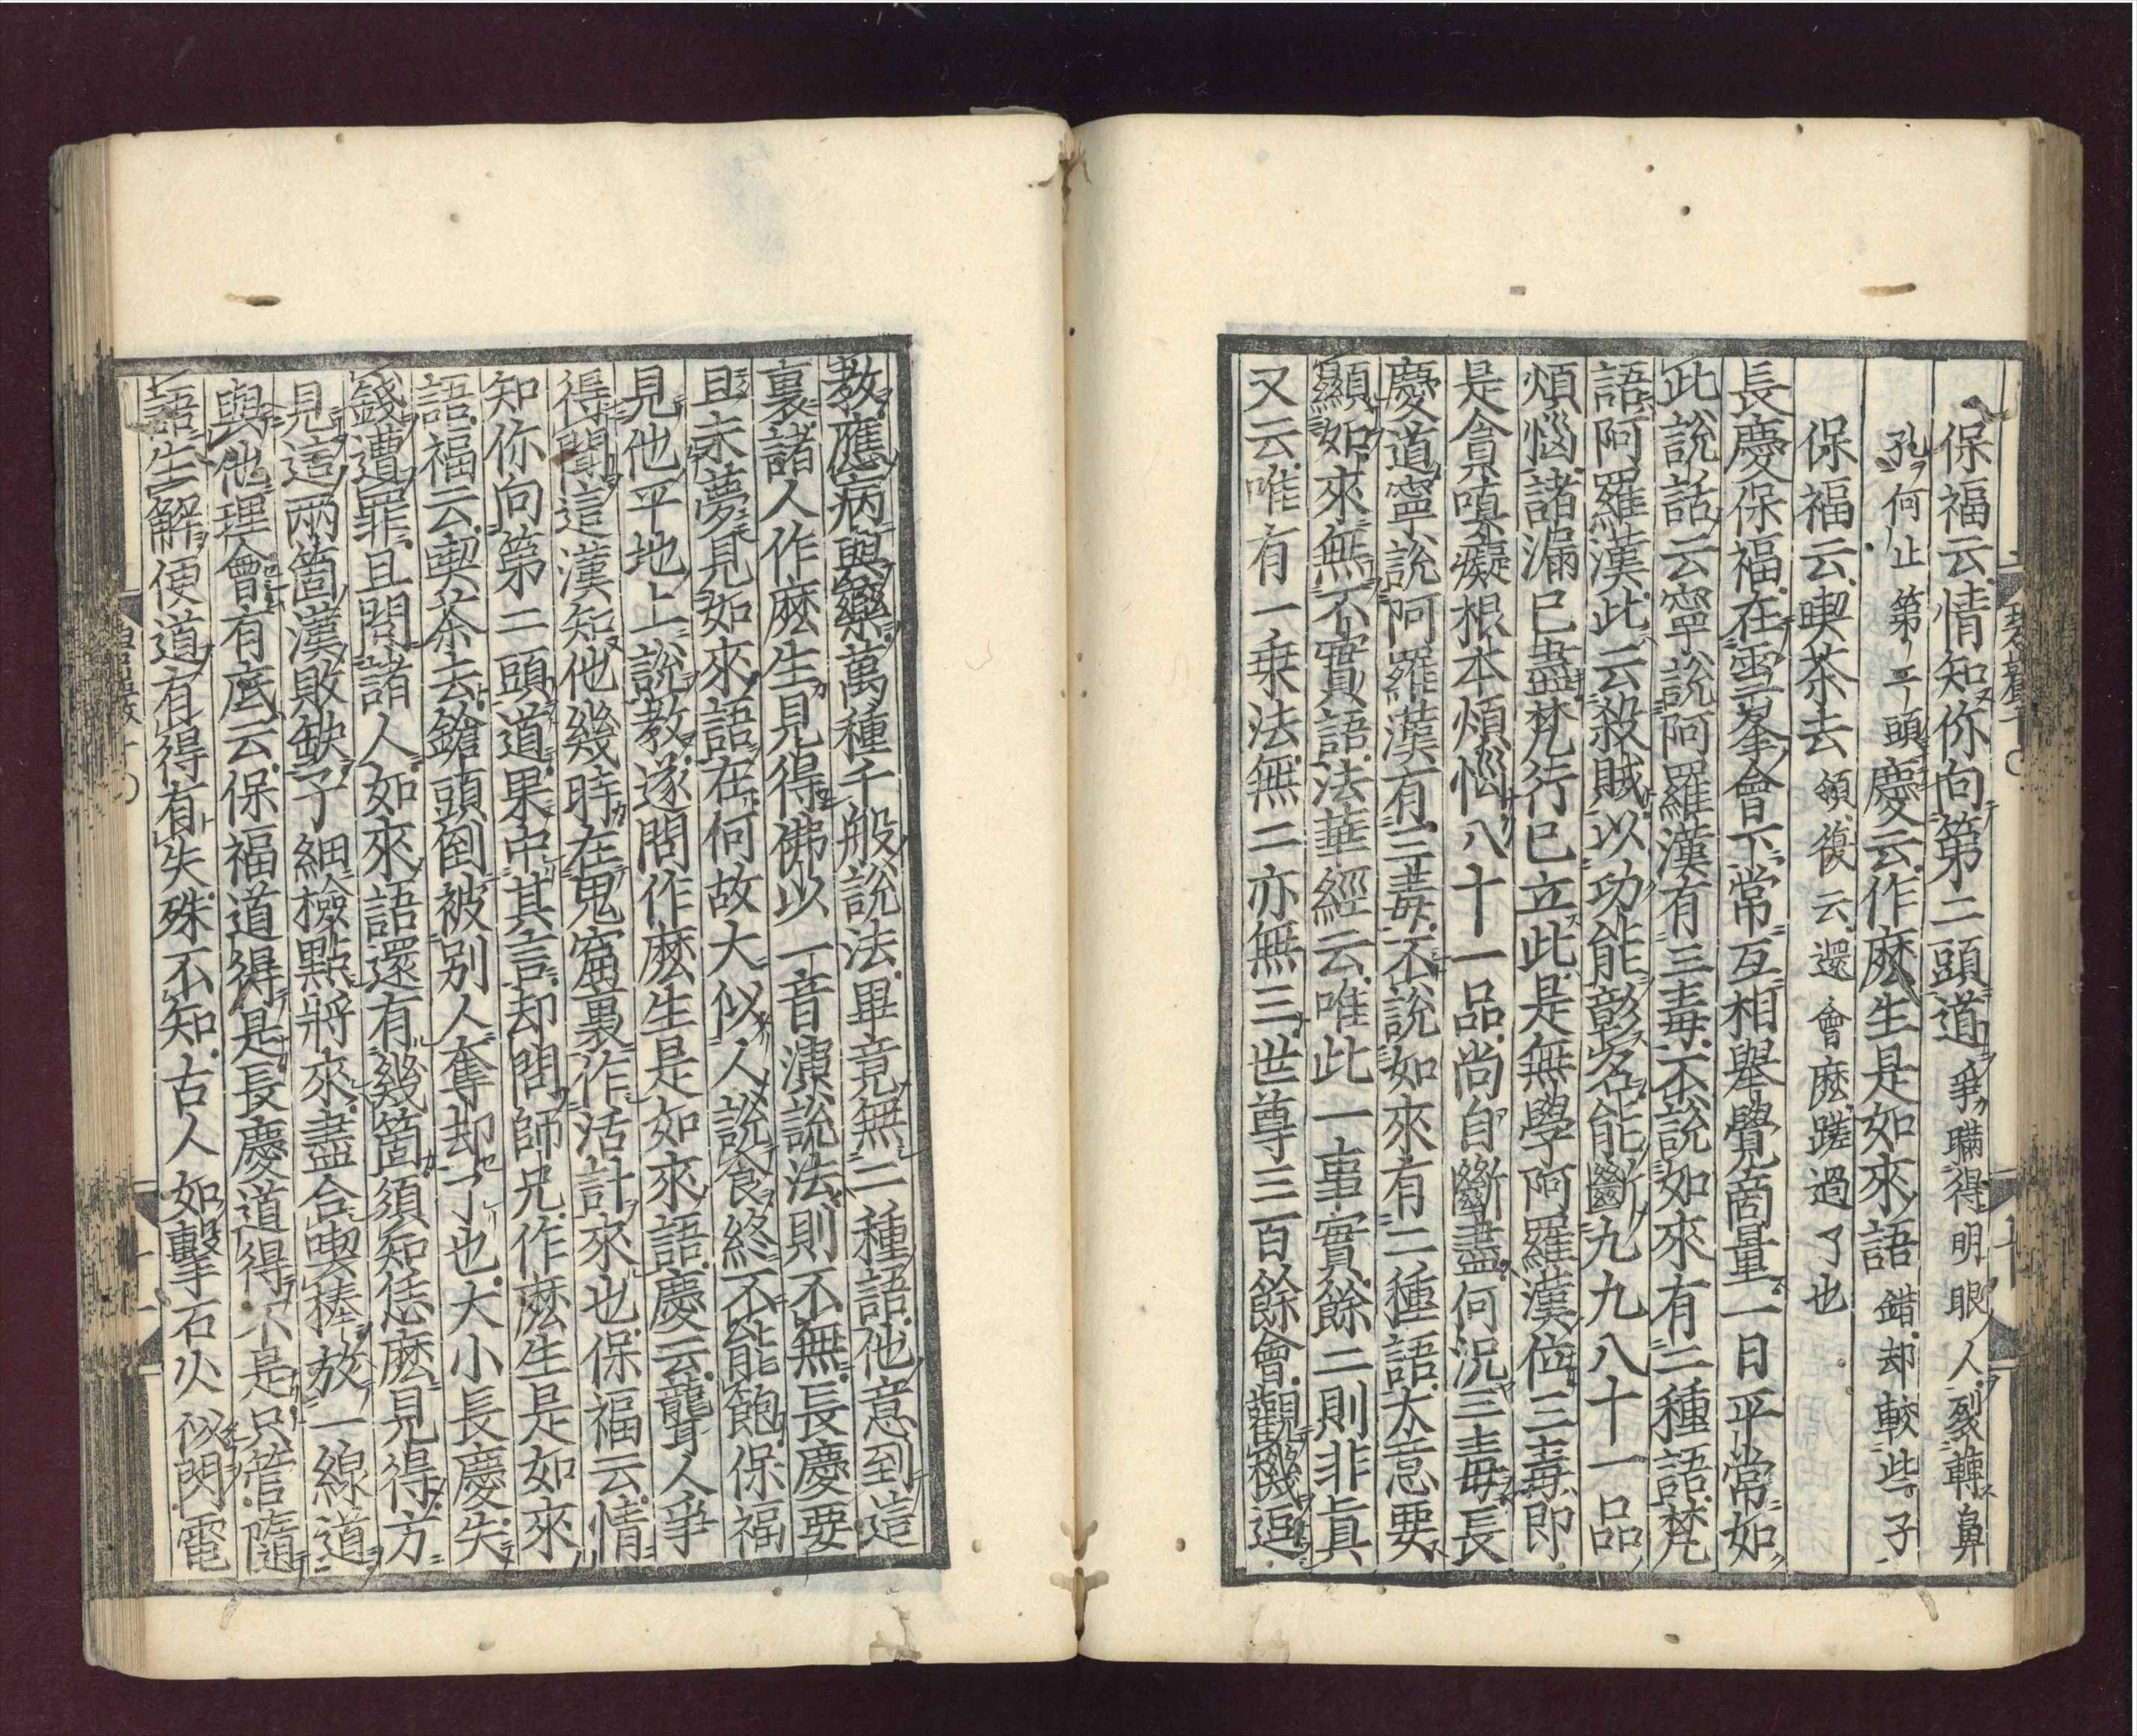 保福云情知你向第二頭道爭瞞得明眼人裂轉鼻
孔何止第二頭慶云作麽生是如來語錯却較些子
保福云喫茶去領復云還會麽蹉過了也
長慶保福在雪峯會下常互相舉覺商量一日平常如
此說話云寧說阿羅漢有三毒不說如來有二種語梵
語阿羅漢此云殺賊以功能彰名能斷九九八十一品
煩惱諸漏已盡梵行已立此是無學阿羅漢位三毒即
是貪嗔癡根本煩惱八十一品尚自斷盡何況三毒長
慶道寧說阿羅漢有三毒不說如來有二種語大意要
顯如來無不實語法華經云唯此一事實餘二則非眞
又云唯有一乗法無二亦無三世尊三百餘會觀機逗
教應病與藥萬種千般說法畢竟無二種語他意到這
裏諸人作麽生見得佛以一音演說法則不無長慶要
且未夢見如來語在何故大似人說食終不能飽保福
見他平地上說教遂問作麽生是如來語慶云聾人爭
得聞這漢知他幾時在鬼窟裏作活計來也保福云情
知你向第二頭道果中其言却問師兄作麽生是如來
語福云喫茶去鎗頭倒被別人奪却了也大小長慶失
錢遭罪且問諸人如來語還有幾箇須知恁麽見得方
見這兩箇漢敗缺子細檢點將來盡合喫棒放一線道
與他理會有底云保福道得是長慶道得不是只管隨
語生解便道有得有失殊不知古人如擊石火似閃電